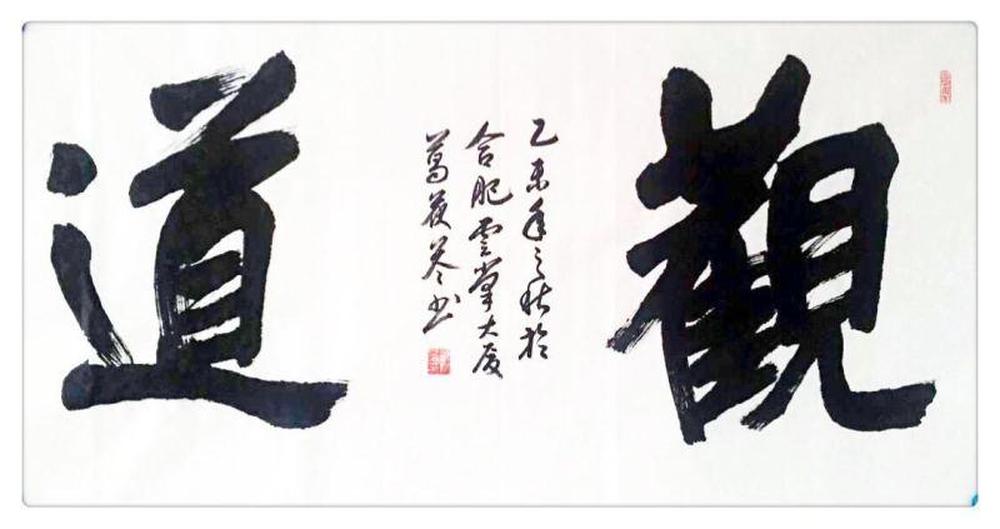 觀
乙未年之秋於
合肥雲掌大廈
葛茯苓书
道